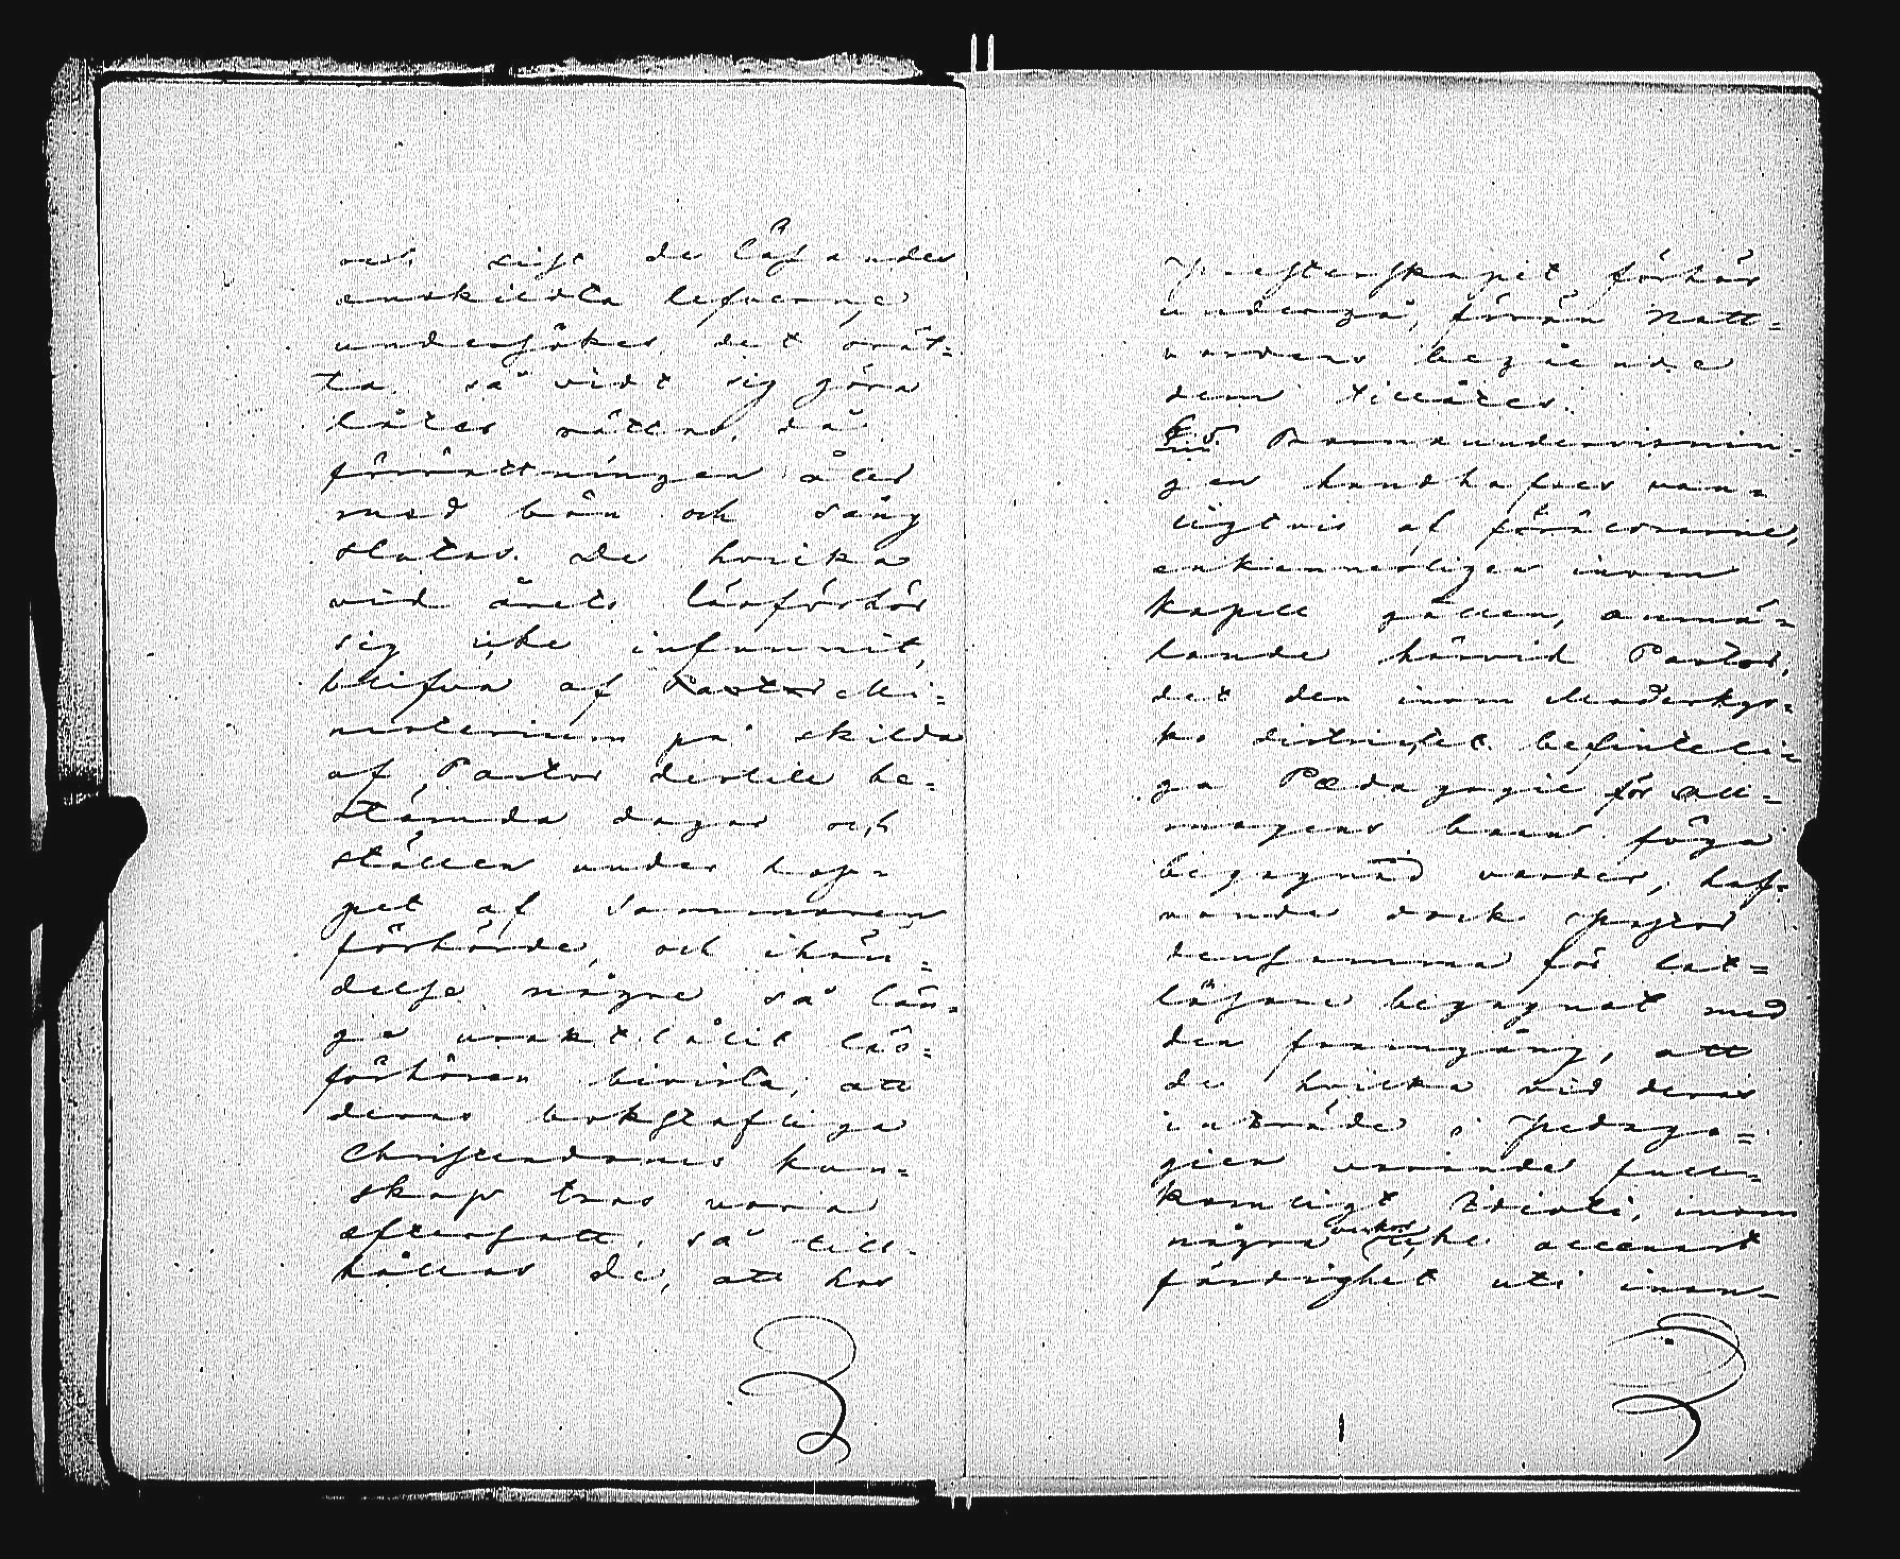 sist de läsandes
enskildta lefverne
undersökes, det orät=
ta, så vidt sig göra
låter rättas, då
förrättningen åter
med bön och sång
slutas. De hvilka
vid årets läsförhör
sig icke infunnit,
blifva af Pastor Mi=
nisterium på skilda
af Pastor dertill be=
stämda dagar och
ställen under lop=
pet af sommaren
förhörde, och ihän=
delse någre så län=
ge uraktlåtit läs=
förhören bivista, att
deras bokstafliga
Christendoms kun=
skap tros vara
eftersatt, så till=
hållas de, att hos
Presterskapet förhör
undergå, förrän Natt=
vardens begående
dem tillåtes.
§ 5. Barnaundervisnin=
gen handhafves van=
ligtvis af föräldrarne,
enkannerligen inom
kapell gällen, anmä=
lande härvid Pastor,
det den inom Moderkyr=
ko districtet befinteli=
ga Pædagogie för all=
mogens barn föga
begagnad varder, haf=
vande dock Pastor
densamma för lat=
läsare begagnat med
den framgång, att
de hvilka vid deras
inträde i Pedago=
gien varande full=
komligt Idioti, inom
några veckor icke allenast
färdighet uti innan=